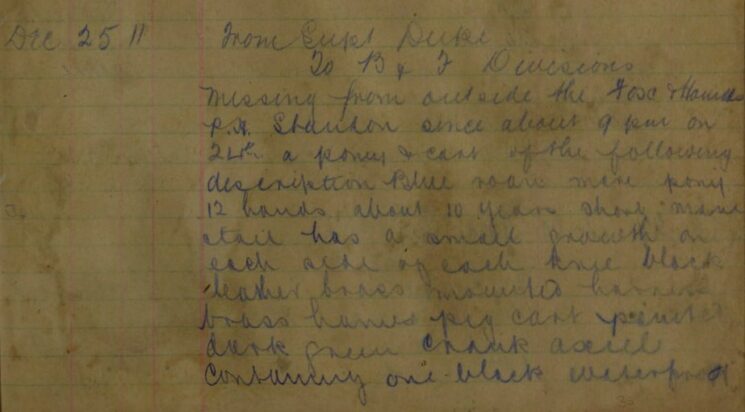 Dec 25 11 From Supt Duke
To B & F Divisions
Missing from outside the Fox & Hounds
P.H. since about 9 pm on
24th a pony & cart of the following
description Blue roan mare pony
12 hands, about 10 years short mane
& tail has a small growth on
each side of each knee black
leather brass mounted harness
brass hames pig cart painted
dark green crank axle
containing one black waterproof